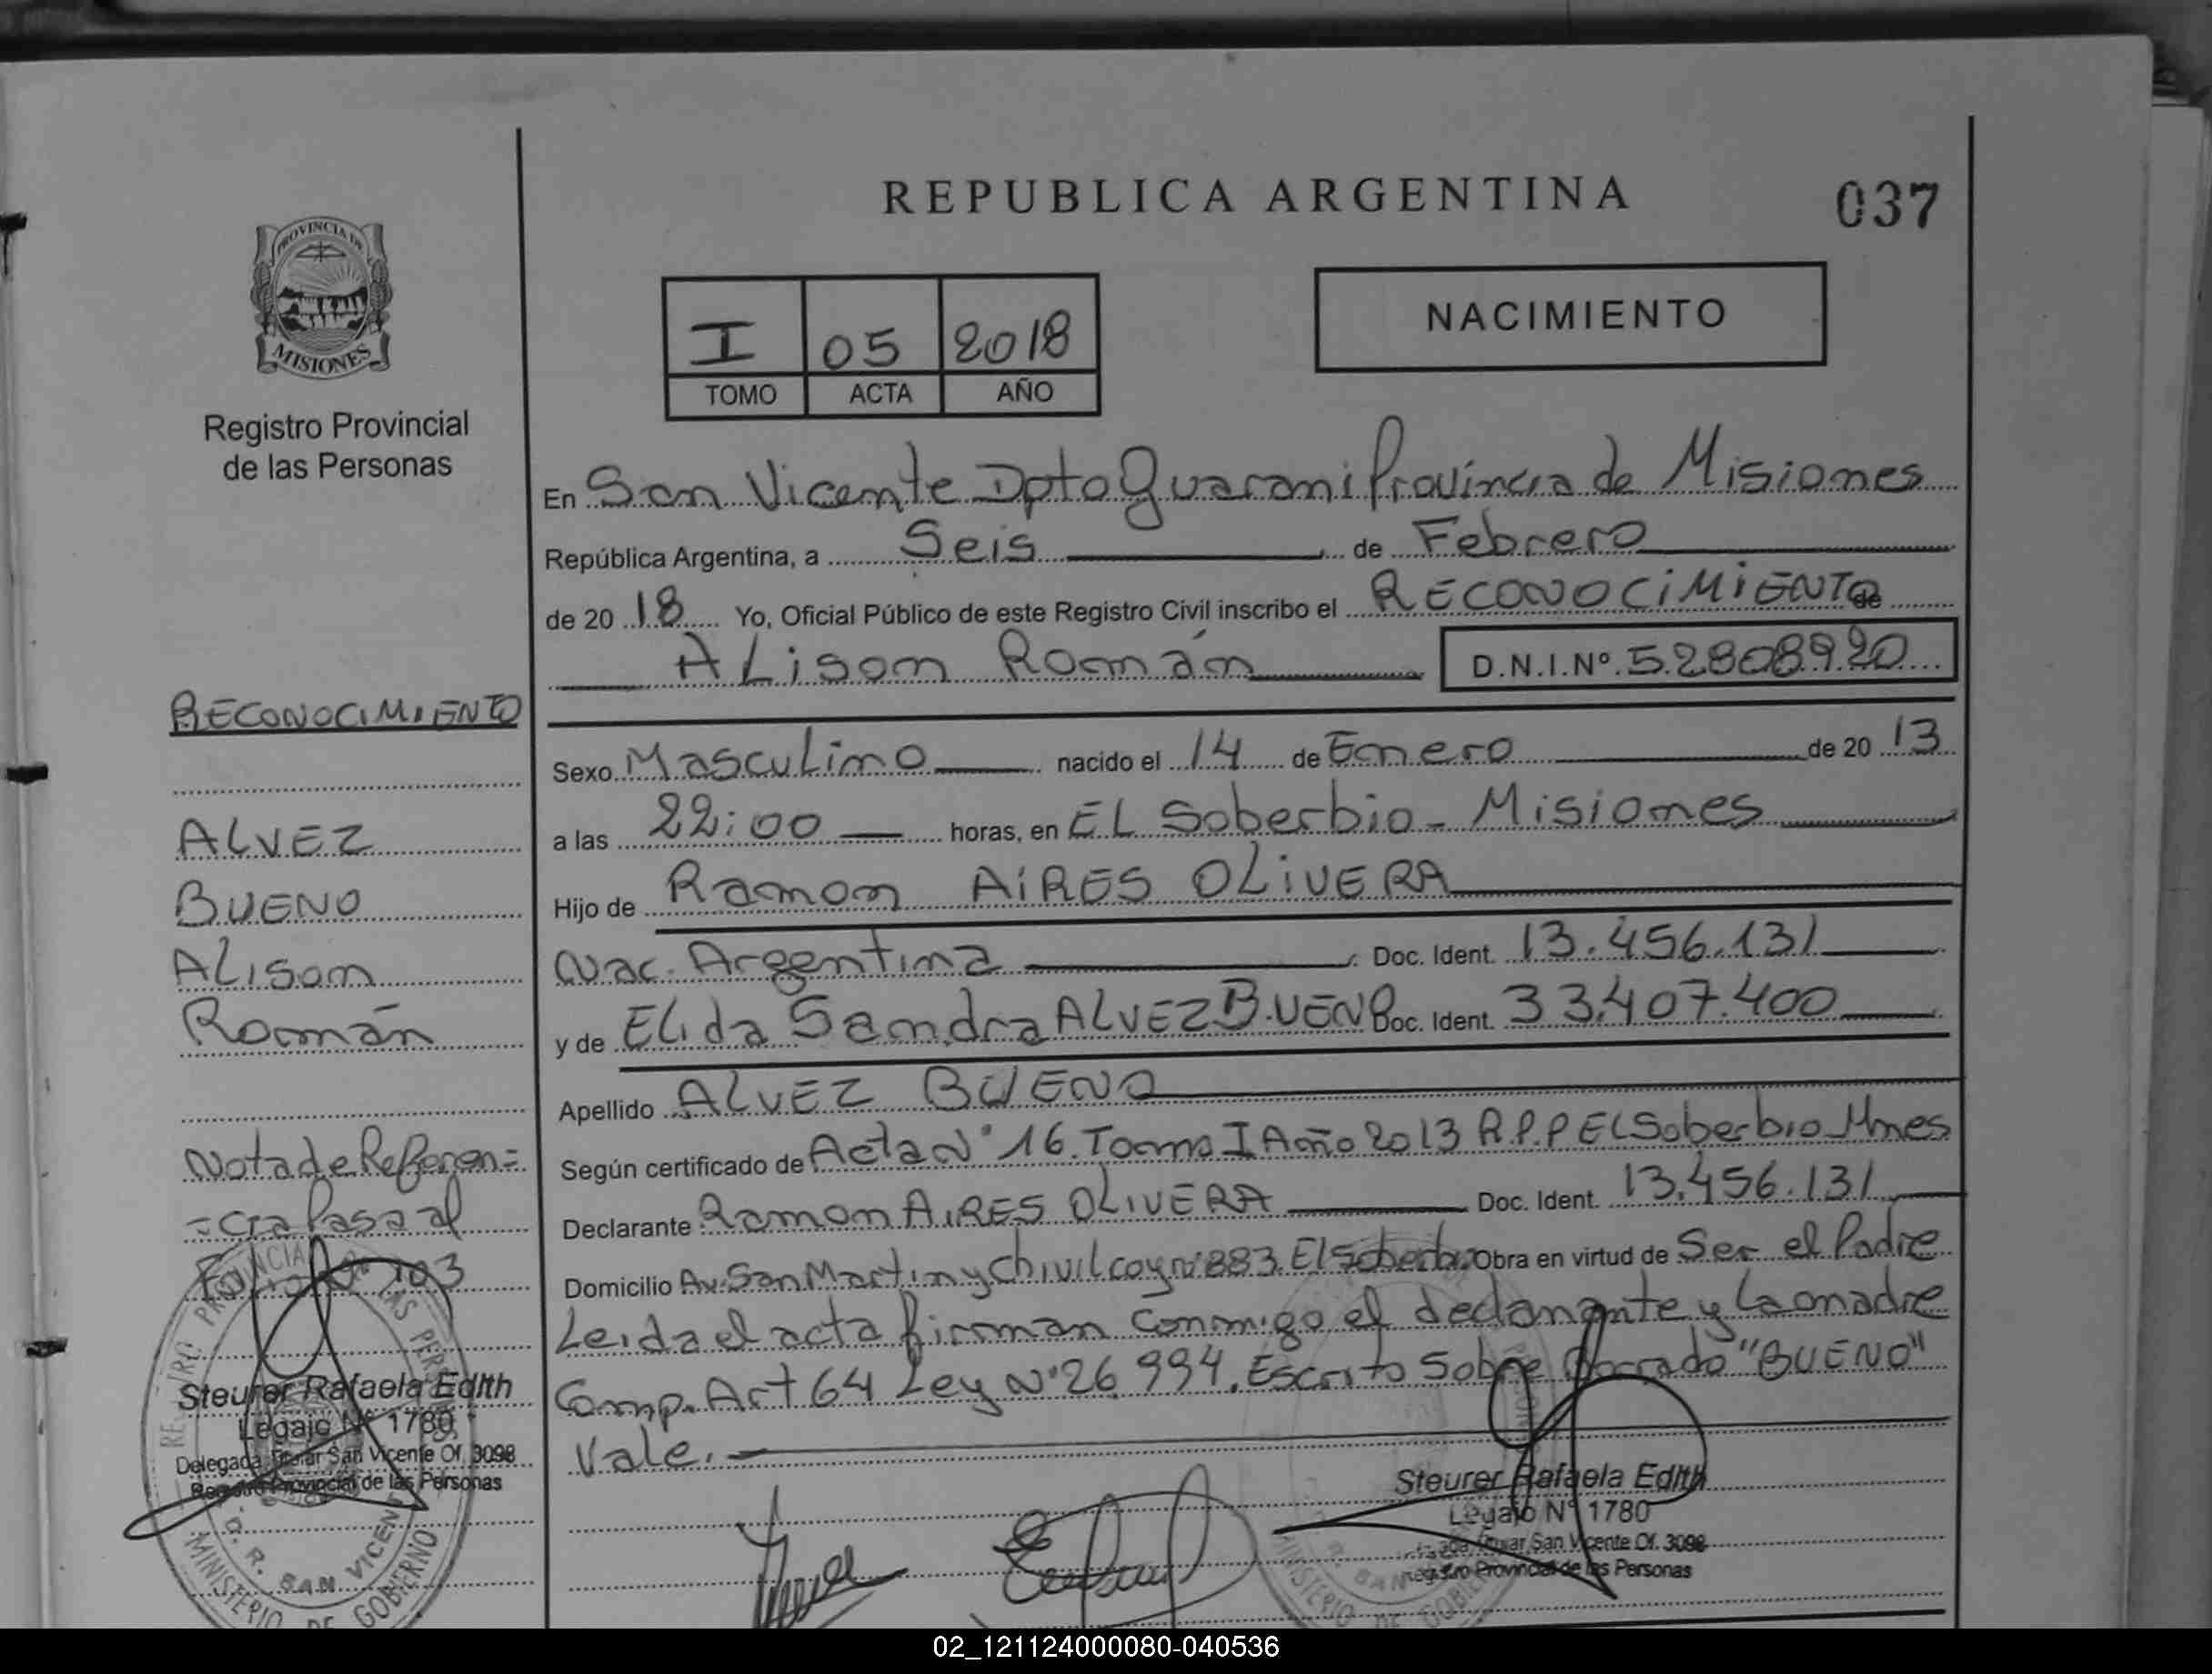 REPUBLICA ARGENTINA
037
PROVINCIA DE
MISIONES
Registro Provincial
de las Personas
I 05 2018
TOMO ACTA AÑO
NACIMIENTO
En San Vicente Dpto Guarani Provincia de Misiones
República Argentina, a Seis de Febrero
de 20 18 Yo, Oficial Público de este Registro Civil inscribo el RECONOCIMIENTO de
ALison Román D.N.I.Nº 52808920
Sexo Masculino nacido el 14 de Enero de 20 13
a las 22:00 horas, en EL Soberbio - Misiones
Hijo de Ramon AIRES OLIVERA
Nac. Argentina Doc. Ident. 13.456.131
y de ELida Sandra ALVEZ BUENO Doc. Ident. 33.407.400
Apellido ALVEZ BUENO
Según certificado de Acta Nº 16 Tomo I Año 2013 R.P.P EL Soberbio Mnes
Declarante Ramon AIRES OLIVERA Doc. Ident. 13.456.131
Domicilio Av. San Martin y Chivilcoy nº 883 El Soberbio Obra en virtud de Ser el Padre
Leida el acta firman conmigo el declarante y La madre
Comp. Art 64 Ley Nº 26.994. Escrito Sobre Borrado "BUENO"
Vale.-
Steurer Rafaela Edith
Legajo Nº 1780
Titular San Vicente Of. 3098
Registro Provincial de las Personas
RECONOCIMIENTO
ALVEZ
BUENO
ALison
Román
Nota de Referen=
=cia Pasa al
103
Steurer Rafaela Edith
Legajo Nº 1780
Delegada Titular San Vicente Of. 3098
Registro Provincial de las Personas
D. R. SAN VICENTE
MINISTERIO DE GOBIERNO
02_121124000080-040536